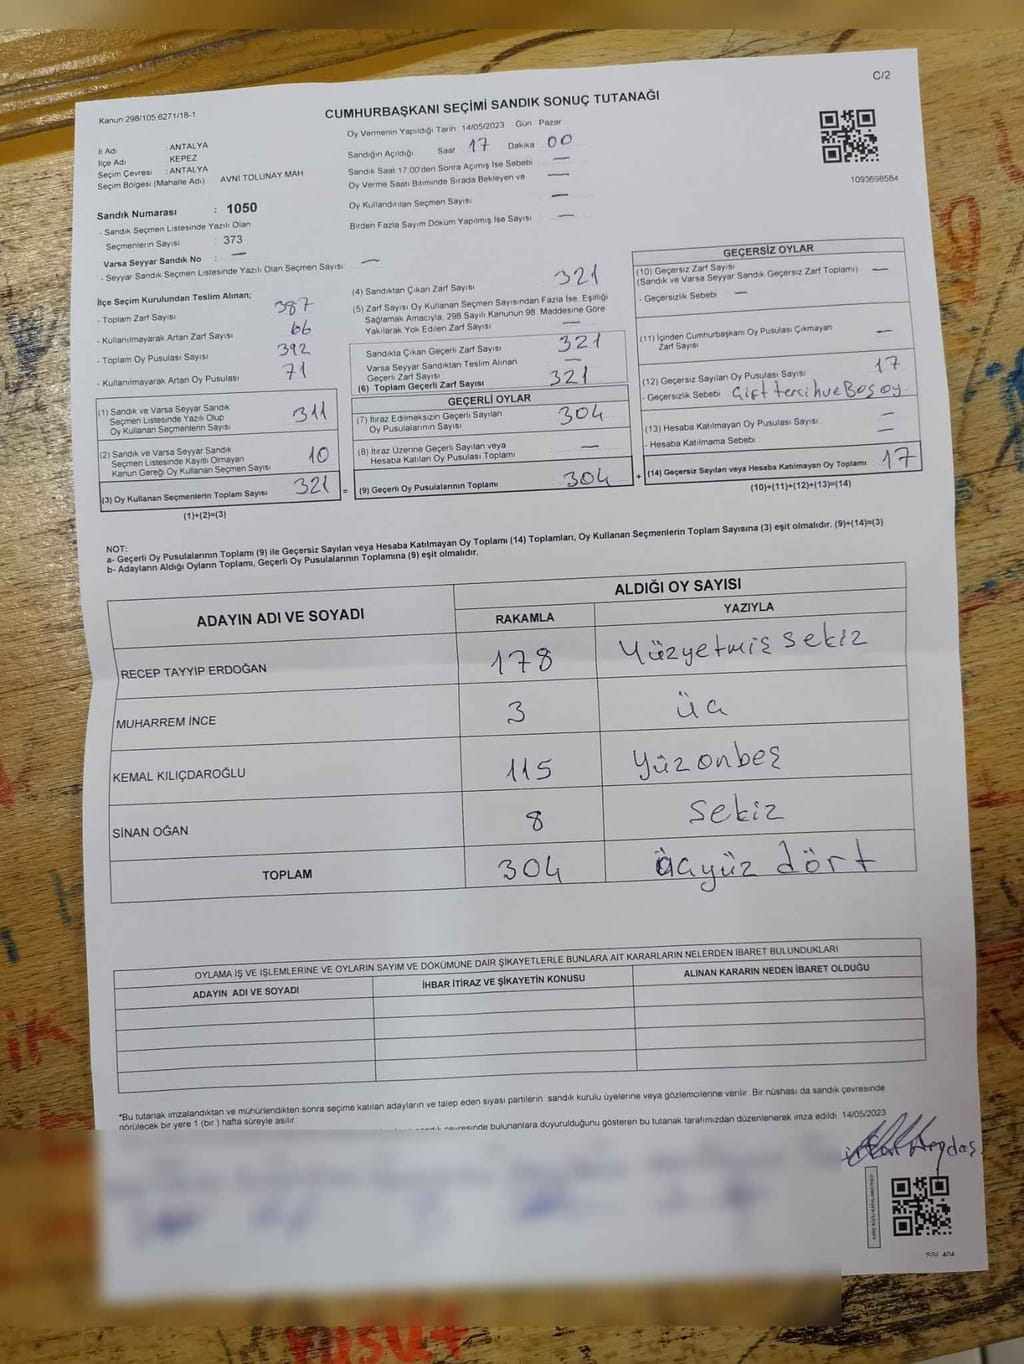 C/2
Kanun 298/105,6271/18-1
CUMHURBAŞKANI SEÇİMİ SANDIK SONUÇ TUTANAĞI
Oy Vermenin Yapıldığı Tarih 14/05/2023 Gün Pazar
İl Adı : ANTALYA
İlçe Adı : KEPEZ
Seçim Çevresi : ANTALYA
Seçim Bölgesi (Mahalle Adı) AVNİ TOLUNAY MAH
Sandığın Açıldığı Saat 17 Dakika 00
Sandık Saat 17.00'den Sonra Açımış İse Sebebi —
Oy Verme Saati Bitiminde Sırada Bekleyen ve —
Oy Kullandırılan Seçmen Sayısı —
Birden Fazla Sayım Döküm Yapılmış İse Sayısı —
1093698584
Sandık Numarası : 1050
- Sandık Seçmen Listesinde Yazılı Olan
Seçmenlerin Sayısı : 373
Varsa Seyyar Sandık No : —
- Seyyar Sandık Seçmen Listesinde Yazılı Olan Seçmen Sayısı: —
İlçe Seçim Kurulundan Teslim Alınan;
- Toplam Zarf Sayısı 387
- Kullanılmayarak Artan Zarf Sayısı 66
- Toplam Oy Pusulası Sayısı 392
- Kullanılmayarak Artan Oy Pusulası 71
(1) Sandık ve Varsa Seyyar Sandık
Seçmen Listesinde Yazılı Olup
Oy Kullanan Seçmenlerin Sayısı 311
(2) Sandık ve Varsa Seyyar Sandık
Seçmen Listesinde Kayıtlı Olmayan
Kanun Gereği Oy Kullanan Seçmen Sayısı 10
(3) Oy Kullanan Seçmenlerin Toplam Sayısı 321 =
(1)+(2)=(3)
(4) Sandıktan Çıkan Zarf Sayısı 321
(5) Zarf Sayısı Oy Kullanan Seçmen Sayısından Fazla İse, Eşitliği
Sağlamak Amacıyla, 298 Sayılı Kanunun 98. Maddesine Göre
Yakılarak Yok Edilen Zarf Sayısı —
Sandıkta Çıkan Geçerli Zarf Sayısı 321
Varsa Seyyar Sandıktan Teslim Alınan
Geçerli Zarf Sayısı —
(6) Toplam Geçerli Zarf Sayısı 321
GEÇERLİ OYLAR
(7) İtiraz Edilmeksizin Geçerli Sayılan
Oy Pusulalarının Sayısı 304
(8) İtiraz Üzerine Geçerli Sayılan veya
Hesaba Katılan Oy Pusulası Toplamı —
(9) Geçerli Oy Pusulalarının Toplamı 304 +
GEÇERSİZ OYLAR
(10) Geçersiz Zarf Sayısı
(Sandık ve Varsa Seyyar Sandık Geçersiz Zarf Toplamı) —
- Geçersizlik Sebebi —
(11) İçinden Cumhurbaşkanı Oy Pusulası Çıkmayan
Zarf Sayısı —
(12) Geçersiz Sayılan Oy Pusulası Sayısı 17
- Geçersizlik Sebebi Çift tercih ve Boş oy
(13) Hesaba Katılmayan Oy Pusulası Sayısı —
- Hesaba Katılmama Sebebi —
(14) Geçersiz Sayılan veya Hesaba Katılmayan Oy Toplamı 17
(10)+(11)+(12)+(13)=(14)
NOT:
a- Geçerli Oy Pusulalarının Toplamı (9) ile Geçersiz Sayılan veya Hesaba Katılmayan Oy Toplamı (14) Toplamları, Oy Kullanan Seçmenlerin Toplam Sayısına (3) eşit olmalıdır. (9)+(14)=(3)
b- Adayların Aldığı Oyların Toplamı, Geçerli Oy Pusulalarının Toplamına (9) eşit olmalıdır.
ADAYIN ADI VE SOYADI
ALDIĞI OY SAYISI
RAKAMLA YAZIYLA
RECEP TAYYİP ERDOĞAN 178 Yüzyetmiş sekiz
MUHARREM İNCE 3 üç
KEMAL KILIÇDAROĞLU 115 yüzonbeş
SİNAN OĞAN 8 sekiz
TOPLAM 304 üçyüz dört
OYLAMA İŞ VE İŞLEMLERİNE VE OYLARIN SAYIM VE DÖKÜMÜNE DAİR ŞİKAYETLERLE BUNLARA AİT KARARLARIN NELERDEN İBARET BULUNDUKLARI
ADAYIN ADI VE SOYADI İHBAR İTİRAZ VE ŞİKAYETİN KONUSU ALINAN KARARIN NEDEN İBARET OLDUĞU
*Bu tutanak imzalandıktan ve mühürlendikten sonra seçime katılan adayların ve talep eden siyasi partilerin sandık kurulu üyelerine veya gözlemcilerine verilir. Bir nüshası da sandık çevresinde
görülecek bir yere 1 (bir) hafta süreyle asılır.
çevresinde bulunanlara duyurulduğunu gösteren bu tutanak tarafımızdan düzenlenerek imza edildi. 14/05/2023